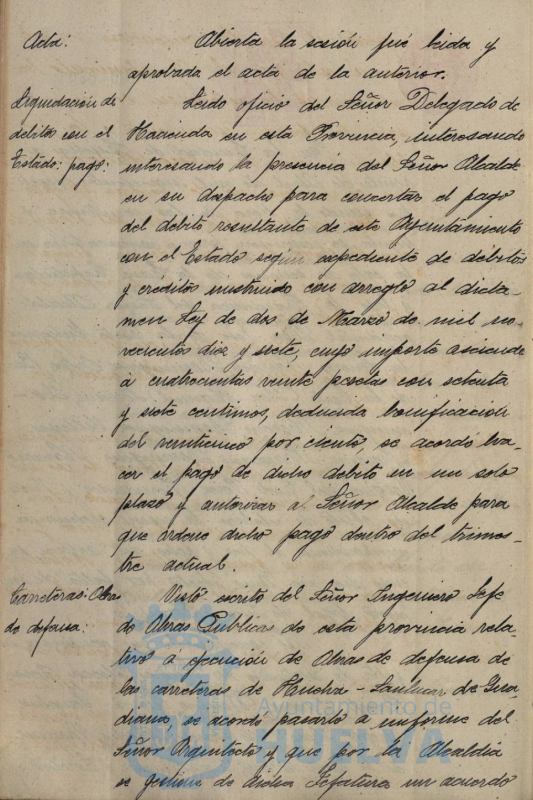 Acta:
Abierta la sesión fué leida y
aprobada el acta de la anterior.
Liquidación de
debitos con el
Estado: pago:
Leido oficio del Señor Delegado de
Hacienda en esta Provincia, interesando
interesando la presencia del Señor Alcalde
en su despacho para concertar el pago
del debito resultante de este Ayuntamiento
con el Estado según expediente de débitos
y créditos instruido con arreglo al dicta-
men Ley de dos de Marzo de mil no-
vecientos diez y siete, cuyo importe asciende
á cuatrocientas veinte pesetas con setenta
y siete centimos, deducida bonificación
del veinticinco por ciento, se acordó ha-
cer el pago de dicho debito en un solo
plazo y autorizar al Señor Alcalde para
que ordene dicho pago dentro del trimes-
tre actual.
Carreteras: Obras
de defensa:
Visto escrito del Señor Ingeniero Jefe
de Obras Publicas de esta provincia rela-
tivo á ejecución de Obras de defensa de
las carreteras de Huelva - Sanlucar de Gua
diana, se acordó pasarlo a informe del
Señor Arquitecto y que por la Alcaldia
se gestione de dicha Jefatura un acuerdo
Ayuntamiento de
HUELVA